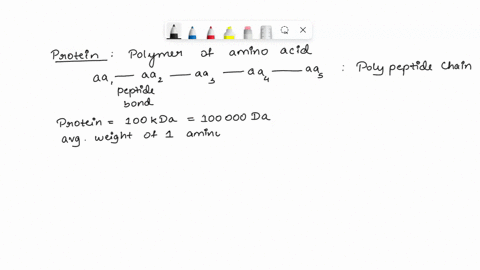 Protein : Polymer of amino acid
aa1 — aa2 — aa3 — aa4 — aa5 : Poly peptide Chain
peptide
bond
Protein = 100 kDa = 100 000 Da
avg. weight of 1 amino